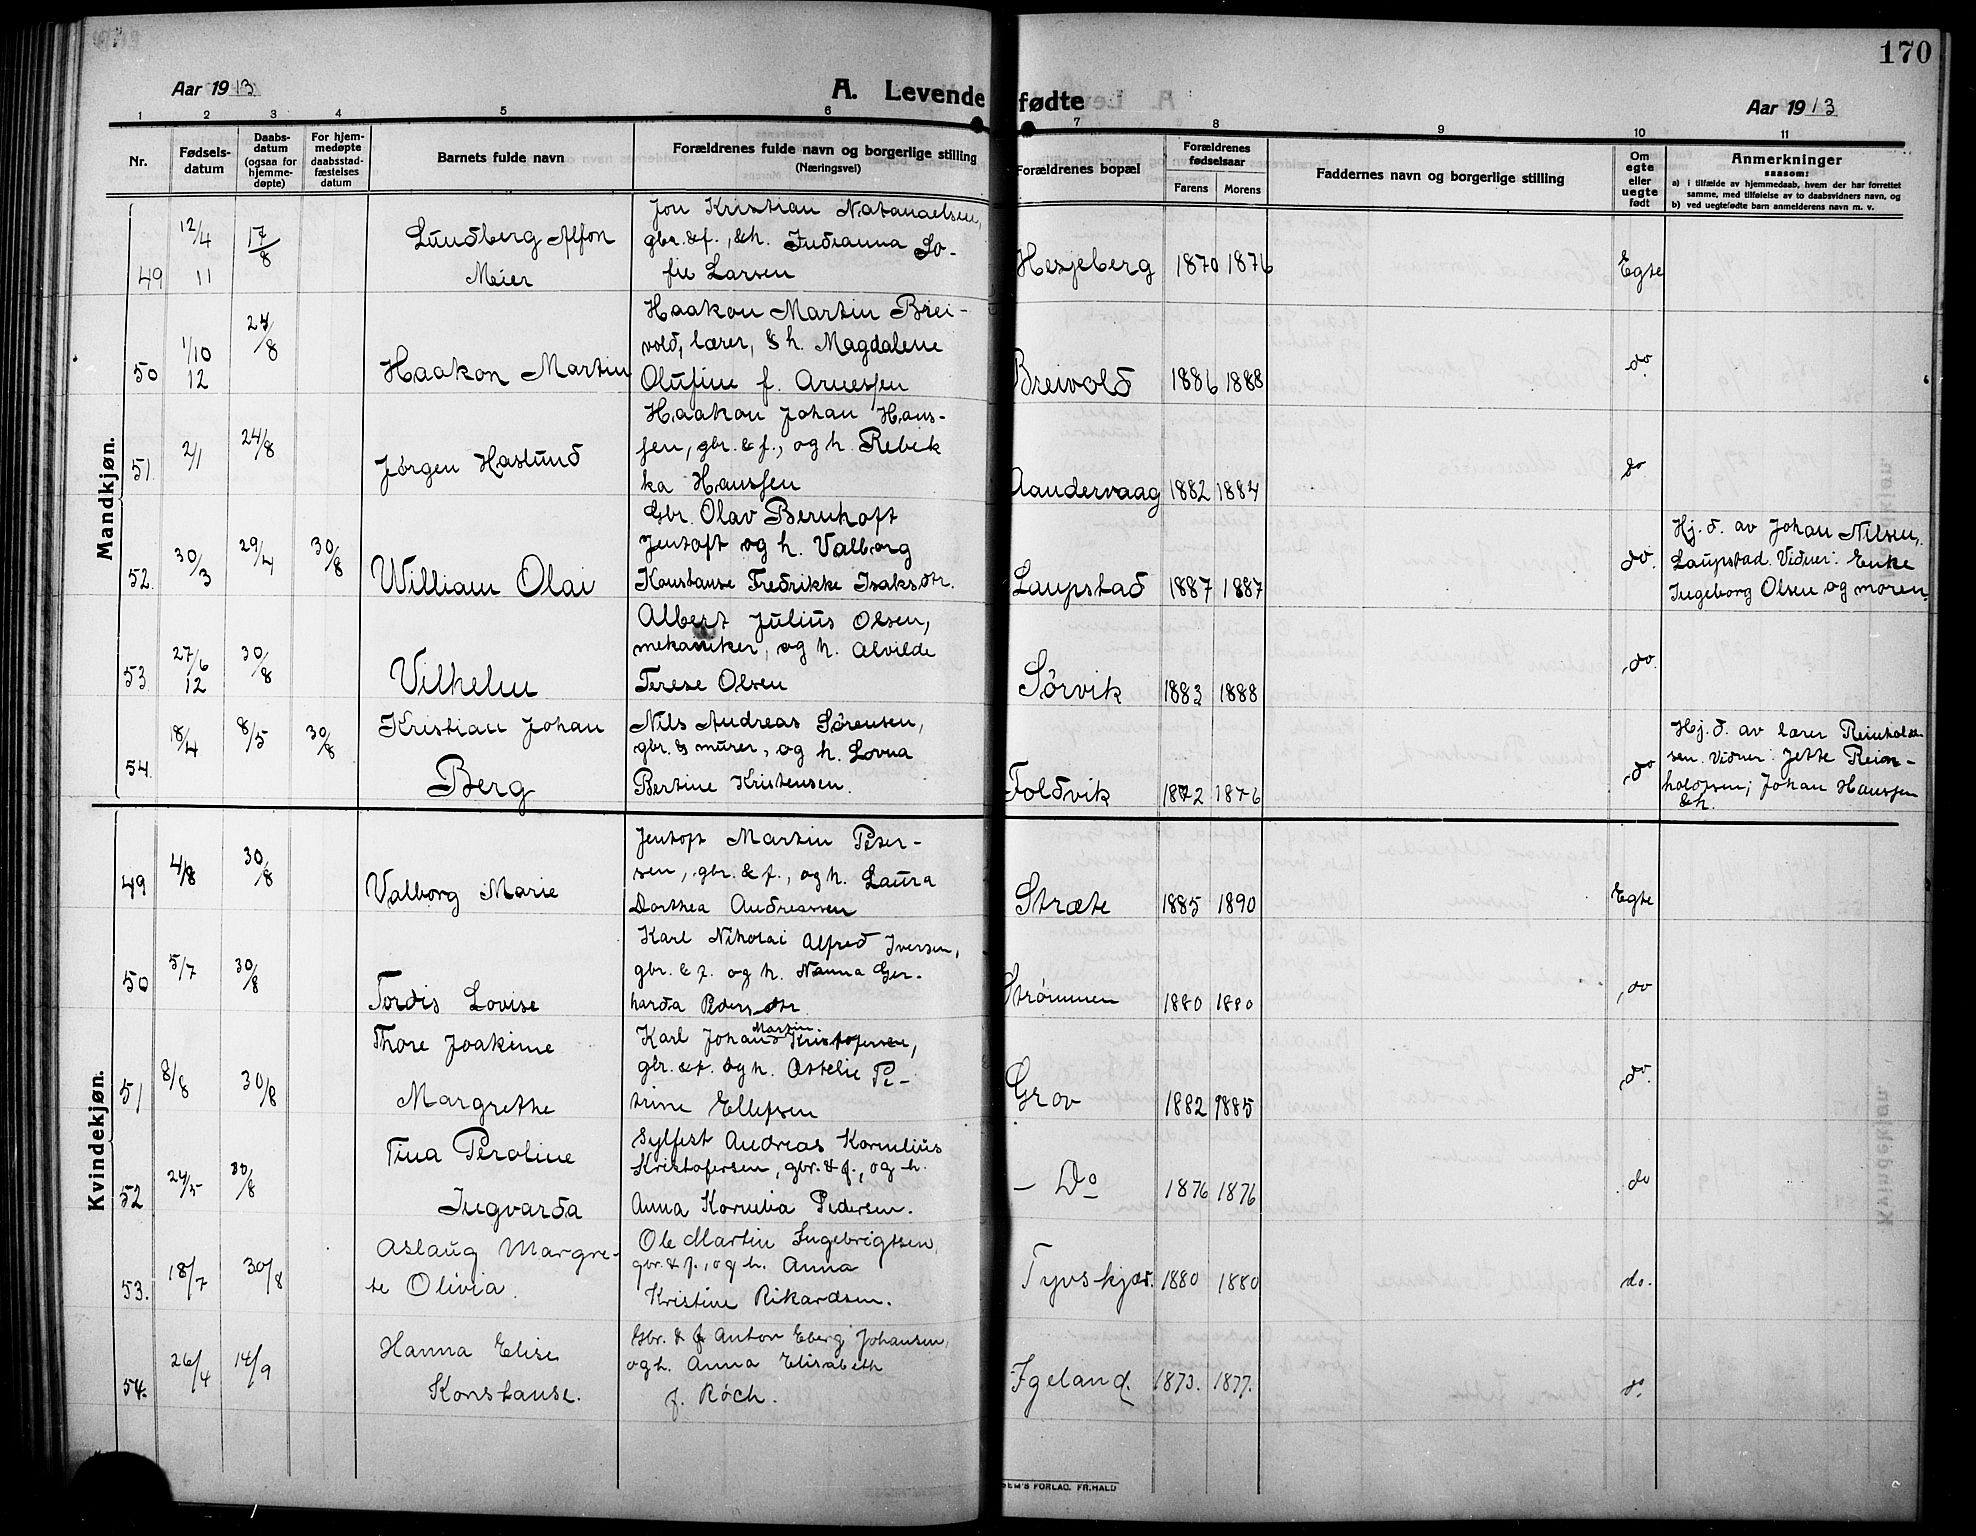 170
Aar 1913
A. Levende fødte
Aar 1913
1 2 3 4 5 6 7 8 9 10 11
Nr.
Fødsels-
datum
Daabs-
datum
(ogsaa for
hjemme-
døpte)
For hjem-
medøpte
daabsstad-
fæstelses
datum
Barnets fulde navn
Forældrenes fulde navn og borgerlige stilling
(Næringsvei)
Forældrenes bopæl
Forældrenes
fødselsaar
Farens Morens
Faddernes navn og borgerlige stilling
Om
egte
eller
uegte
født
Anmerkninger
saasom:
a) i tilfælde av hjemmedaab, hvem der har forrettet
samme, med tilføielse av to daabsvidners navn, og
b) ved uegtefødte barn anmelderens navn m. v.
Mandkjøn.
49
12/4
11
17/8
Lundberg Alfon
Meier
Jon Kristian Natanaelsen,
gbr. & f., & h. Indianna So-
fie Larsen
Hesjeberg
1870 1876
Egte
50
1/10
12
24/8
Haakon Martin
Haakon Martin Brei-
vold, lærer, & h. Magdalene
Olufine f. Arnessen
Breivold
1886 1888
do
51.
2/1
24/8
Jørgen Haslund
Haakon Johan Hans-
sen, gbr. & f., og h. Rebek
ka Hanssen
Aandervaag
1882 1884
do
52.
30/3
29/4
30/8
William Olai
Gbr. Olav Bernhoft
Jentoft og h. Valborg
Konstanse Fredrikke Isaksdtr.
Laupstad
1887 1887
do.
Hj. d. av Johan Nilsen,
Laupstad. Vidner: Enke
Ingeborg Olsen og moren.
53
27/6
12
30/8
Vilhelm
Albert Julius Olsen,
mekaniker, og h. Alvilde
Terese Olsen
Sørvik
1883 1888
do.
54.
18/4
8/5
30/8
Kristian Johan
Berg
Nils Andreas Sørensen,
gbr. & murer, og h. Lovna
Bertine Kristensen.
Foldvik
1872 1876
do
Hj. d. av lærer Reinholdt-
sen. Vidner: Jette Rein-
holdtsen; Johan Hanssen
& h.
Kvindekjøn.
49
4/8
30/8
Valborg Marie
Jentoft Martin Peter-
sen, gbr. & f., og h. Laura
Dorthea Andreassen
Stræte
1885 1890
Egte
50
5/7
30/8
Tordis Lovise
Karl Nikolai Alfred Iversen,
gbr. & f. og h. Nanna Ger-
harda Pedersdtr
Strømmen
1880 1880
do
51
8/8
30/8
Thore Joakime
Margrethe
Martin
Karl Johan Kristofersen,
gbr. & f. og h. Attelie Pe-
trine Ellefsen
Grov
1882 1885
do.
52
24/5
30/8
Tina Peroline
Ingvarda
Sylfest Andreas Kornelius
Kristofersen, gbr. & f., og h.
Anna Kornelia Pedersen.
- Do
1876 1876
do
53.
18/7
30/8
Aslaug Margre-
te Olivia.
Ole Martin Ingebrigtsen,
gbr. & f., og h. Anna
Kristine Rikardsen.
Tyvskjær.
1880 1880
do.
54.
26/4
14/9
Hanna Elise
Konstanse.
Gbr. & f Anton Eberg Johansen,
og h. Anna Elisabeth
f. Röch.
Igeland.
1873. 1877.
do
SEM'S FORLAG, FR.HALD